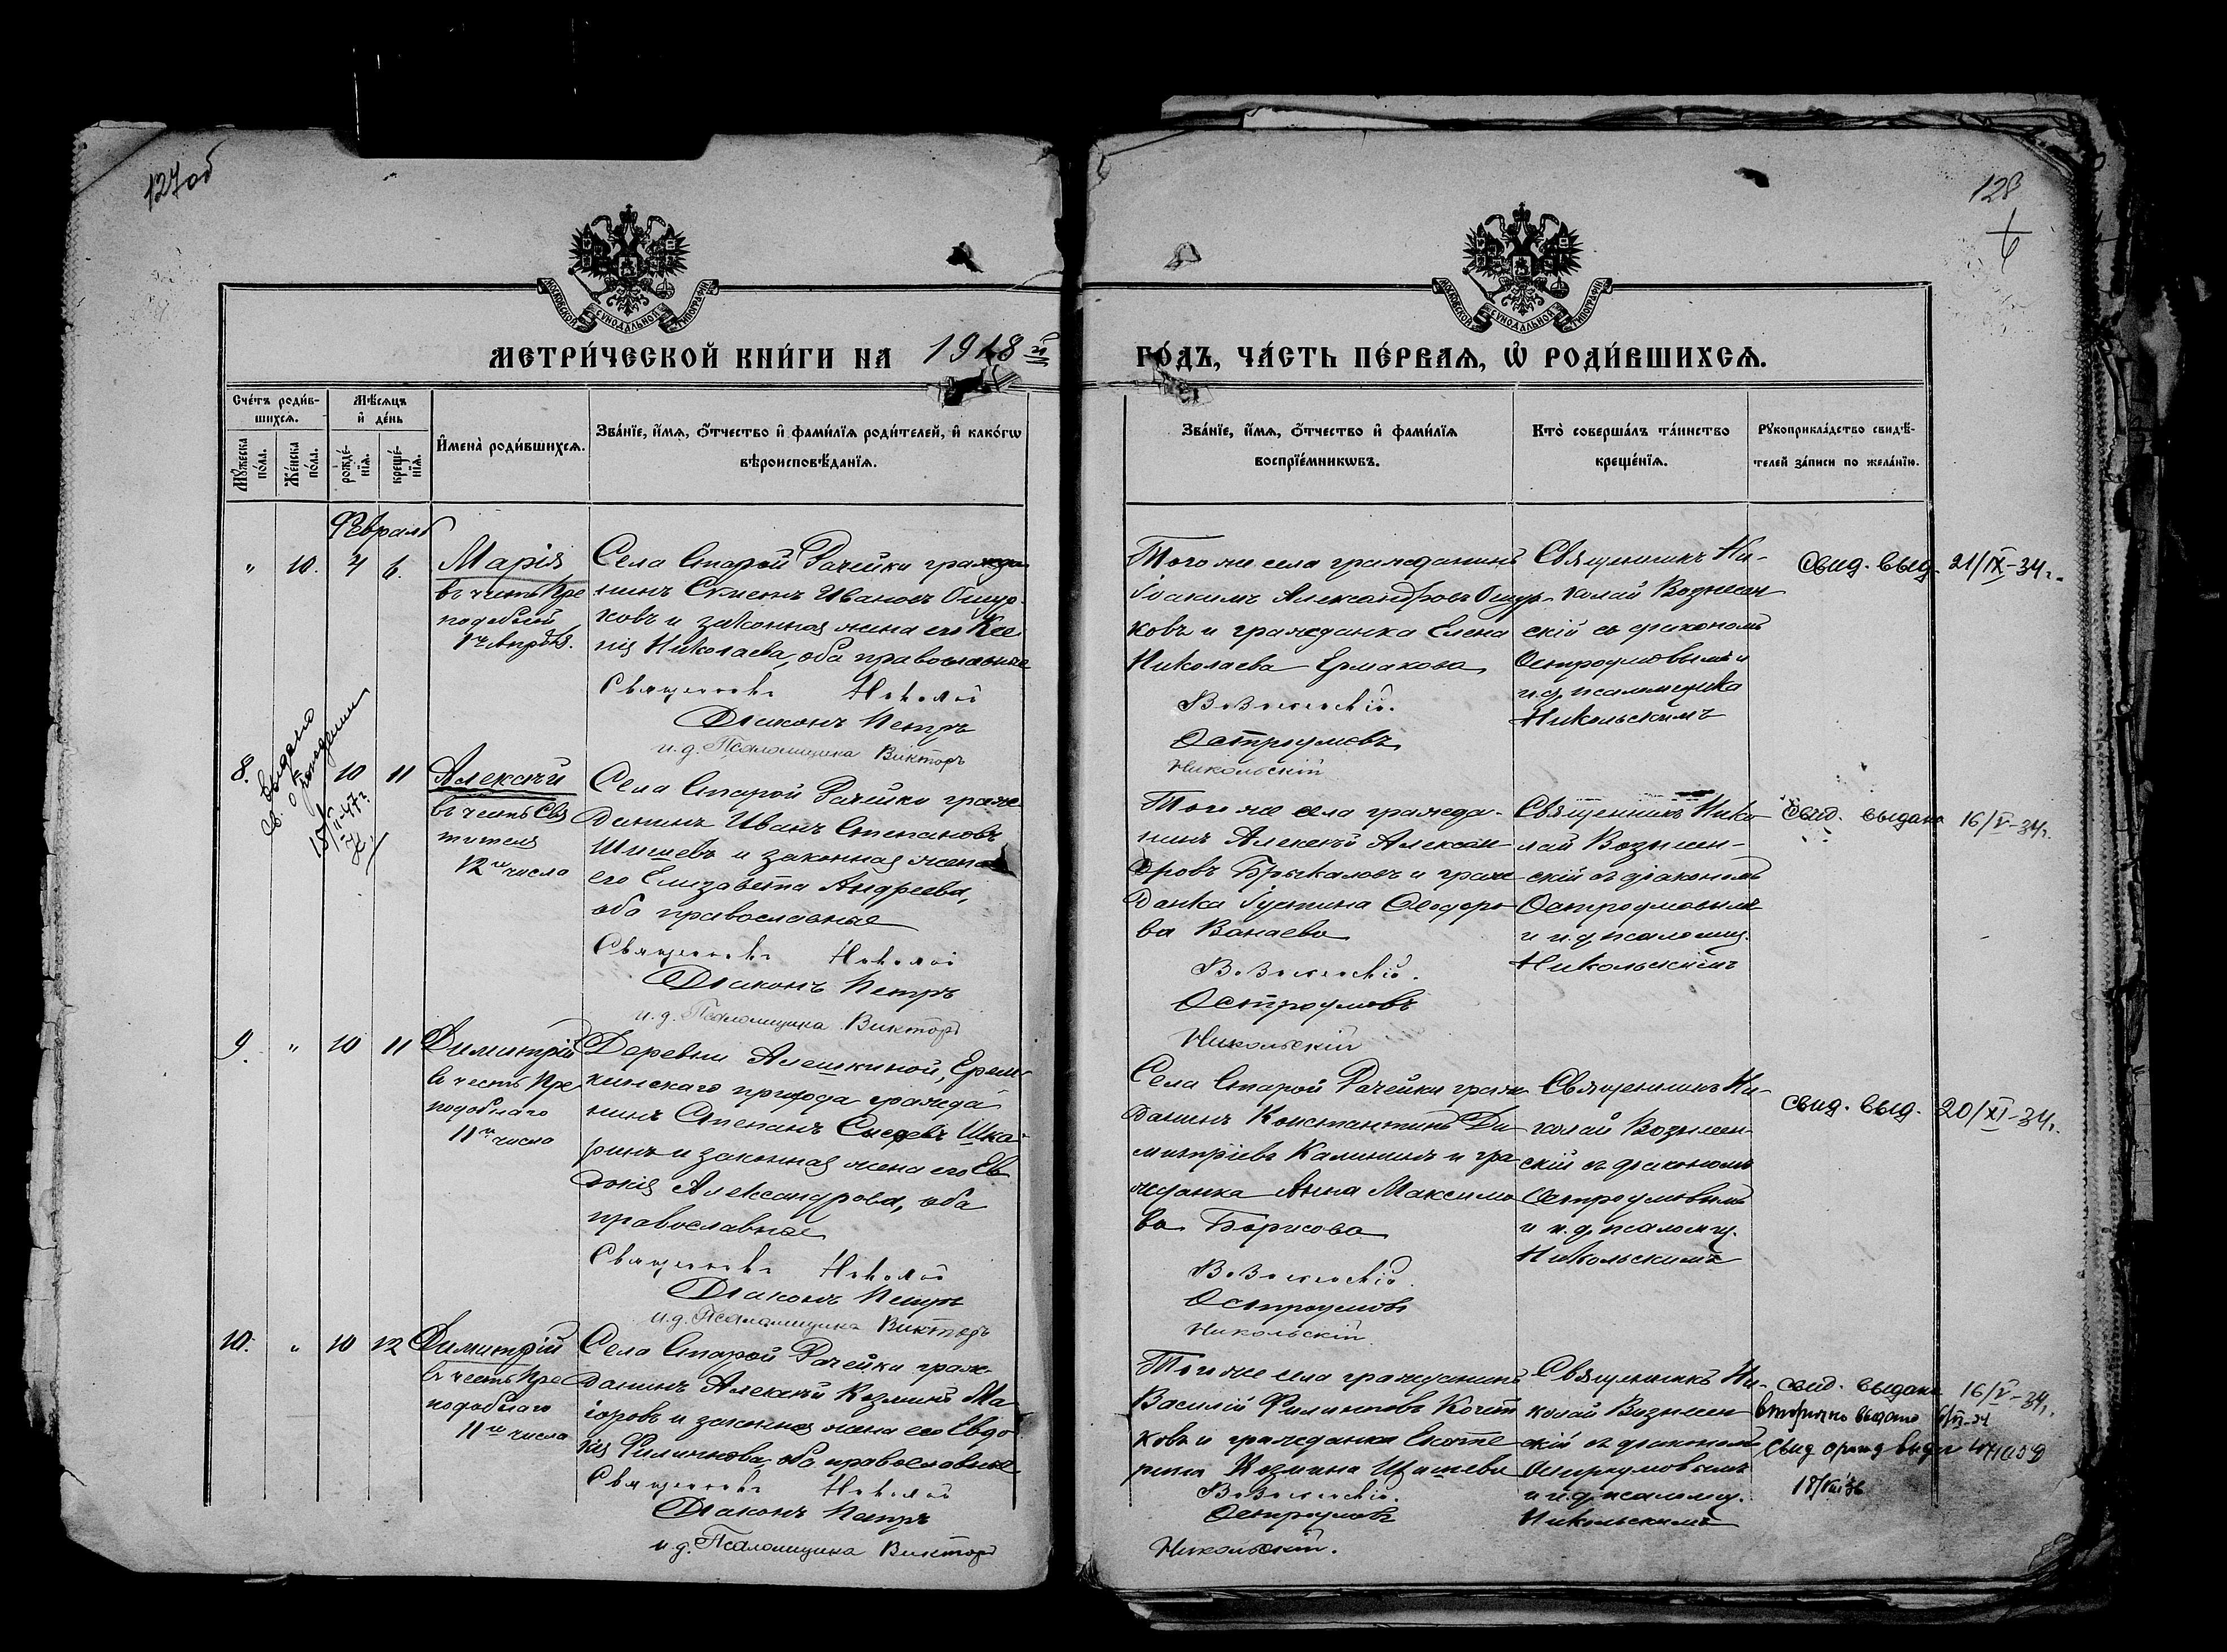 127об
128
МОСКОВСКОЙ СѴНОДАЛЬНОЙ ТИПОГРАФІИ
МОСКОВСКОЙ СѴНОДАЛЬНОЙ ТИПОГРАФІИ
МЕТРИ́ЧЕСКОЙ КНИ́ГИ НА 1918 й
ГО́ДЪ, ЧА́СТЬ ПЕ́РВАѦ, Ѽ РОДИ́ВШИХСѦ.
Сче́тъ роди́в-
шихсѧ.
Мѣ́сѧцъ
и҆ де́нь
Мꙋ́жеска по́ла.
Же́нска по́ла.
рожде́-
нїѧ.
креще́-
нїѧ.
И҆мена̀ роди́вшихсѧ.
Зва́нїе, и҆́мѧ, ѻ҆́тчество и҆ фами́лїѧ роди́телей, и҆ како́гѡ
вѣроисповѣ́данїѧ.
Зва́нїе, и҆́мѧ, ѻ҆́тчество и҆ фами́лїѧ
воспрїе́мникѡвъ.
Кто̀ соверша́лъ та́инство
креще́нїѧ.
Рꙋкоприкла́дство свидѣ́-
телей за́писи по жела́нїю.
Февраль
" 10. 4 6.
Марія
въ честь Пре
подобной
Села Старой Рачейки гражда-
нинъ Сѵмеонъ Ивановъ Ошур-
ковъ и законная жена его Ксе
нія Николаева, оба православные
Священникъ Николай
Діаконъ Петръ
и.д. Псаломщика Викторъ
Того же села гражданинъ
Іоакимъ Александровъ Ошур-
ковъ и гражданка Елена
Николаева Ермакова
Вознесенскій.
Остроумовъ
Никольскій
Священникъ Ни-
колай Вознесен
скій съ діакономъ
Остроумовымъ и
и.д. псаломщика
Никольскимъ
Свид. выд. 21/IX-34г.
8. 10 11
выдано
Алексѣй
въ честь Свя
тителя
12го числа
Села Старой Рачейки граж-
данинъ Иванъ Степановъ
Шишевъ и законная жена
его Елизавета Андреева,
оба православные
Священникъ Николай
Діаконъ Петръ
и.д. Псаломщика Викторъ
Того же села гражда-
нинъ Алексѣй Алексан-
дровъ Брыкаловъ и граж
данка Іустина Ѳеодоро
ва Ванаева
Вознесенскій.
Остроумовъ
Никольскій
Священникъ Нико
лай Вознесен-
скій съ діакономъ
Остроумовымъ
и и.д. псаломщ.
Никольскимъ
Свид. выдано 16/V-34г.
9. " 10 11
Димитрій
въ честь Пре
подобнаго
11го числа
Деревни Алешкиной, Ерем-
кинскаго прихода гражда
нинъ Степанъ Шка-
ринъ и законная жена его Ев
докія Александрова, оба
православные
Священникъ Николай
Діаконъ Петръ
и.д. Псаломщика Викторъ
Села Старой Рачейки граж
данинъ Константинъ Ди
митріевъ Калининъ и гра
жданка Анна Максимо
ва Борисова
Вознесенскій.
Остроумовъ
Никольскій.
Священникъ Ни-
колай Вознесен-
скій съ діакономъ
Остроумовымъ
и и.д. псаломщ.
Никольскимъ
свид. выд. 20/XI-34г.
10. " 10 12
Димитрій
въ честь Пре
подобнаго
11го числа
Села Старой Рачейки граж-
данинъ Алексѣй Козминъ Ма
іоровъ и законная жена его Евдо
кія Филиппова, оба православные
Священникъ Николай
Діаконъ Петръ
и.д. Псаломщика Викторъ
Того же села гражданинъ
Василій Филипповъ Кочет
ковъ и гражданка Екате
рина Козмина Шишева
Вознесенскій.
Остроумовъ
Никольскій.
Священникъ Ни-
колай Вознесен
скій съ діакономъ
Остроумовымъ
и и.д. псаломщ.
Никольскимъ
свид. выдано 16/V-34г.
вторично выдано